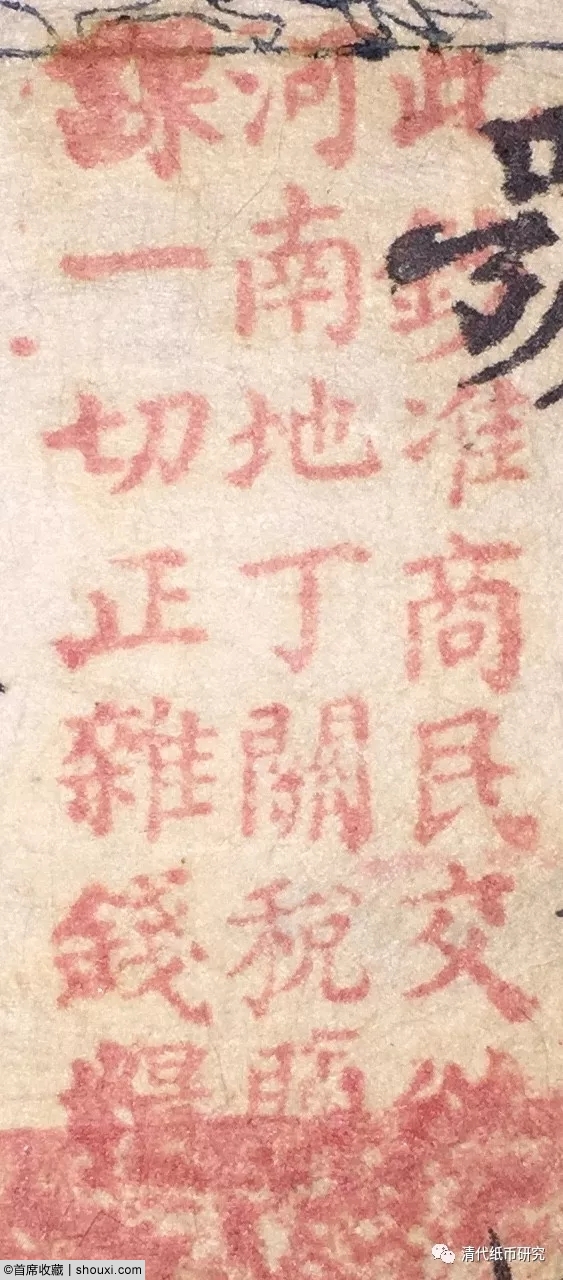 此鈔准商民交
河南地丁關税
課一切正雜錢糧
©首席收藏 | shouxi.com
清代纸币研究